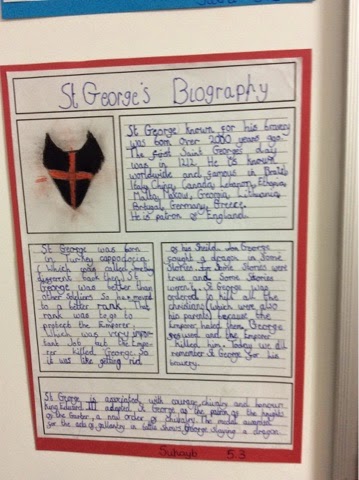 St George's Biography
St George known for his bravery
was born over 2000 years ago.
The first Saint George's day
was in 1212. He is known
worldwide and famous in
Italy, China, Canada, Lebanon, Ethiopia,
Malta, Georgia,
Portugal, Germany, Greece.
He is patron of England.
St George was born
in Turkey cappadocia
(Which was called
different back then). St
George was better than
other soldiers so he moved
to a better rank. That
rank was to go to
protect the Emperor,
Which was very
job but the Empe-
ror killed George. So
it was like getting rid
of his Shield. George
fought a dragon in some
Stories. Some Stories were
true and Some Stories
weren't. St George was
ordered to kill all the
christians (which were also
his parents) because the
Emperor hated them. George
and the Emperor
killed him. Today we all
remember St George for his
bravery.
St George is associated with courage, chivalry and honour.
King Edward III adopted St George as the patron of the knights
of the Garter, a new order of chivalry. The medal awarded
for the acts of gallantry in battle shows George slaying a dragon.
Suhayb 5.3